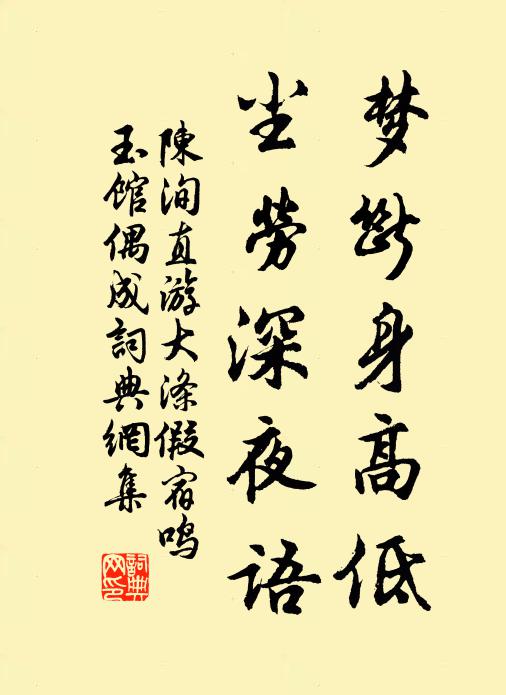 梦断身高低
尘劳深夜语
陳洵直游大涤假宿鸣
玉馆偶成詞典網集
詞典
网印